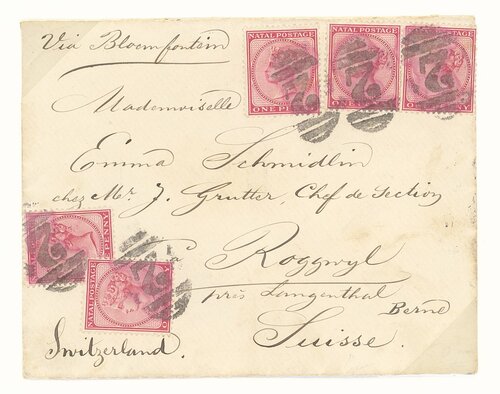 Via Bloemfontein
NATAL POSTAGE
ONE PENNY
NATAL POSTAGE
ONE PENNY
NATAL POSTAGE
Mademoiselle
Emma Schmidlin
chez Mr. J. Grutter, Chef de Section
Roggwyl
près Langenthal
Berne
Suisse.
NATAL POSTAGE
Switzerland.